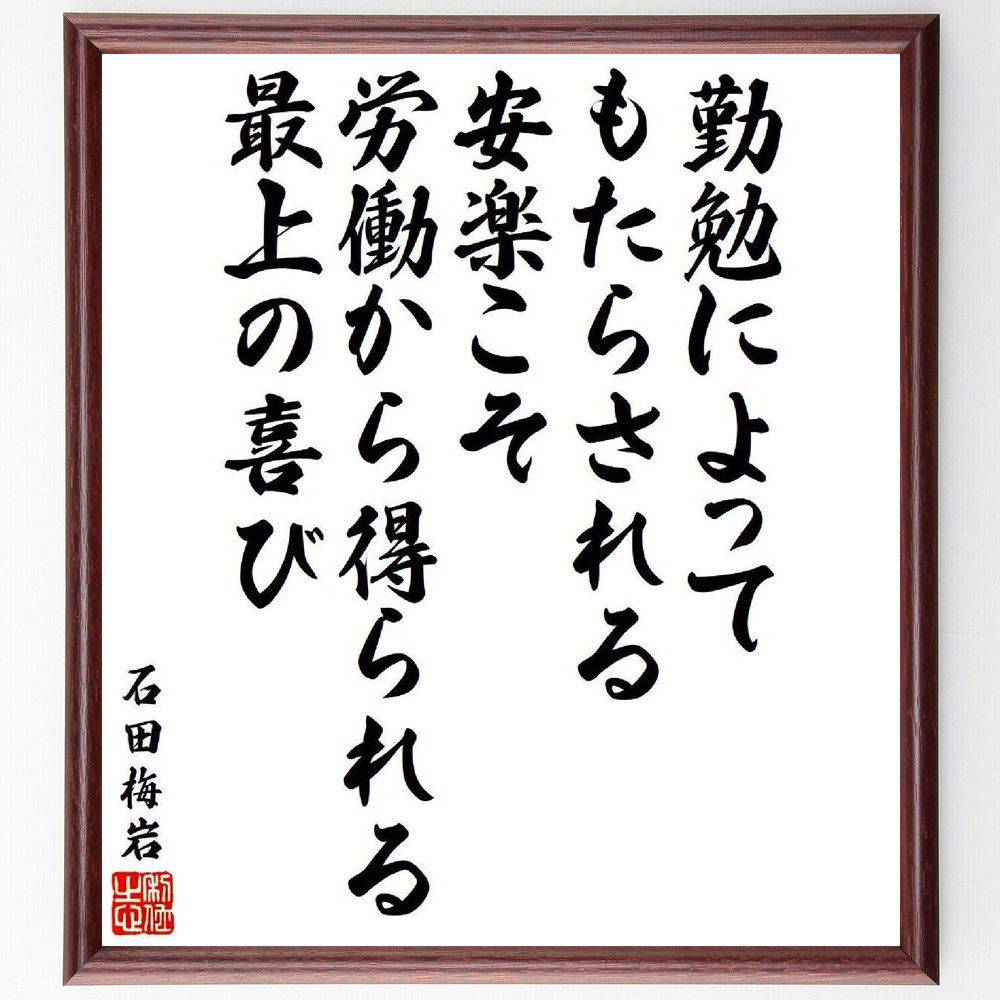 勤勉によって
もたらされる
安楽こそ
労働から得られる
最上の喜び
石田梅岩